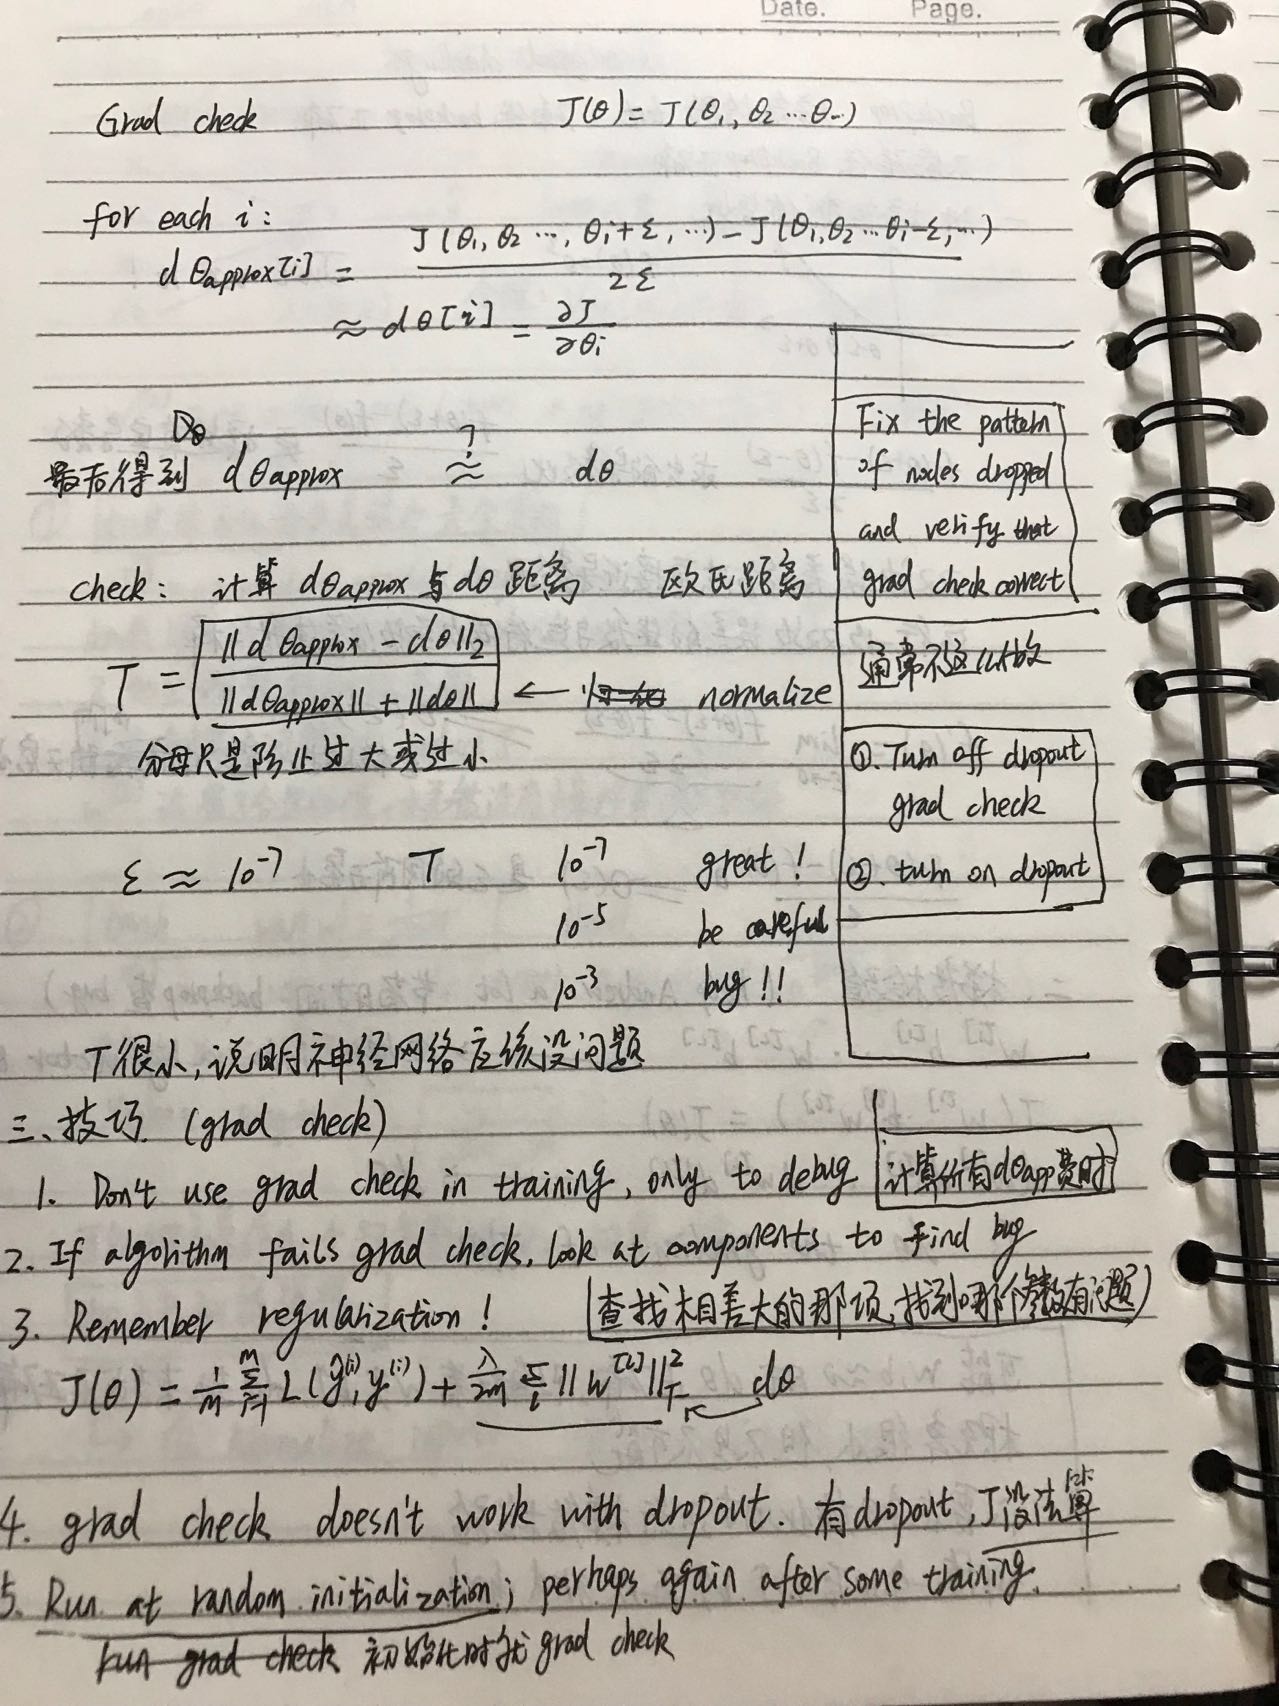 Date. Page.
Grad check J(θ) = J(θ₁, θ₂ ⋯ θ⋯)
for each i:
dθapprox[i] = (J(θ₁, θ₂ ⋯, θᵢ+Σ, ⋯) − J(θ₁, θ₂ ⋯ θᵢ−Σ, ⋯)) / 2Σ
≈ dθ[i] = ∂J/∂θᵢ
Dθ
最后得到 dθapprox ≈? dθ
check: 计算 dθapprox 与 dθ 距离 欧氏距离
T = ||dθapprox − dθ||₂ / (||dθapprox|| + ||dθ||) ← normalize
分母只是防止过大或过小
Σ ≈ 10⁻⁷ T 10⁻⁷ great!
10⁻⁵ be careful
10⁻³ bug!!
T很小,说明神经网络应该没问题
Fix the pattern
of nodes dropped
and verify that
grad check correct
通常不这么做
①. Turn off dropout
grad check
②. turn on dropout
三、技巧. (grad check)
1. Don't use grad check in training, only to debug 计算所有dθapp费时
2. If algorithm fails grad check, look at components to find bug
(查找相差大的那项,找到哪个参数有问题)
3. Remember regularization!
J(θ) = 1/m Σᵢ₌₁ᵐ L(ŷ⁽ⁱ⁾, y⁽ⁱ⁾) + λ/2m Σₗ ||W^[l]||²_F dθ
4. grad check doesn't work with dropout. 有dropout, J没法算
5. Run at random initialization; perhaps again after some training.
run grad check 初始化时就 grad check